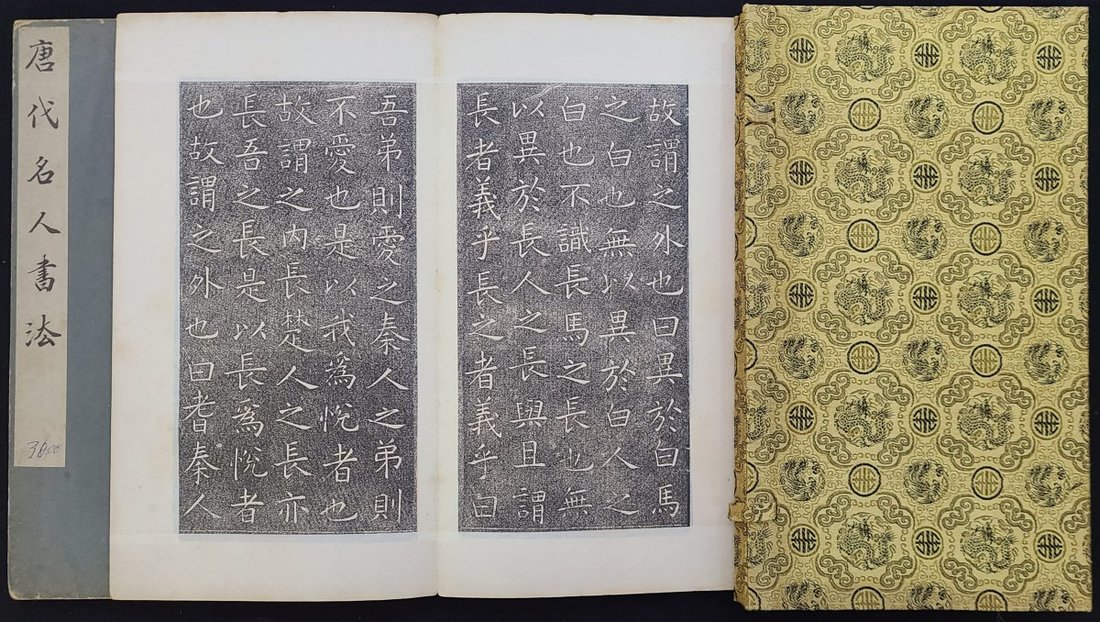 唐代名人書法
故謂之外也曰異於白馬
之白也無以異於白人之
白也不識長馬之長也無
以異於長人之長與且謂
長者義乎長之者義乎曰
吾弟則愛之秦人之弟則
不愛也是以我爲悅者也
故謂之内長楚人之長亦
長吾之長是以長爲悅者
也故謂之外也曰耆秦人